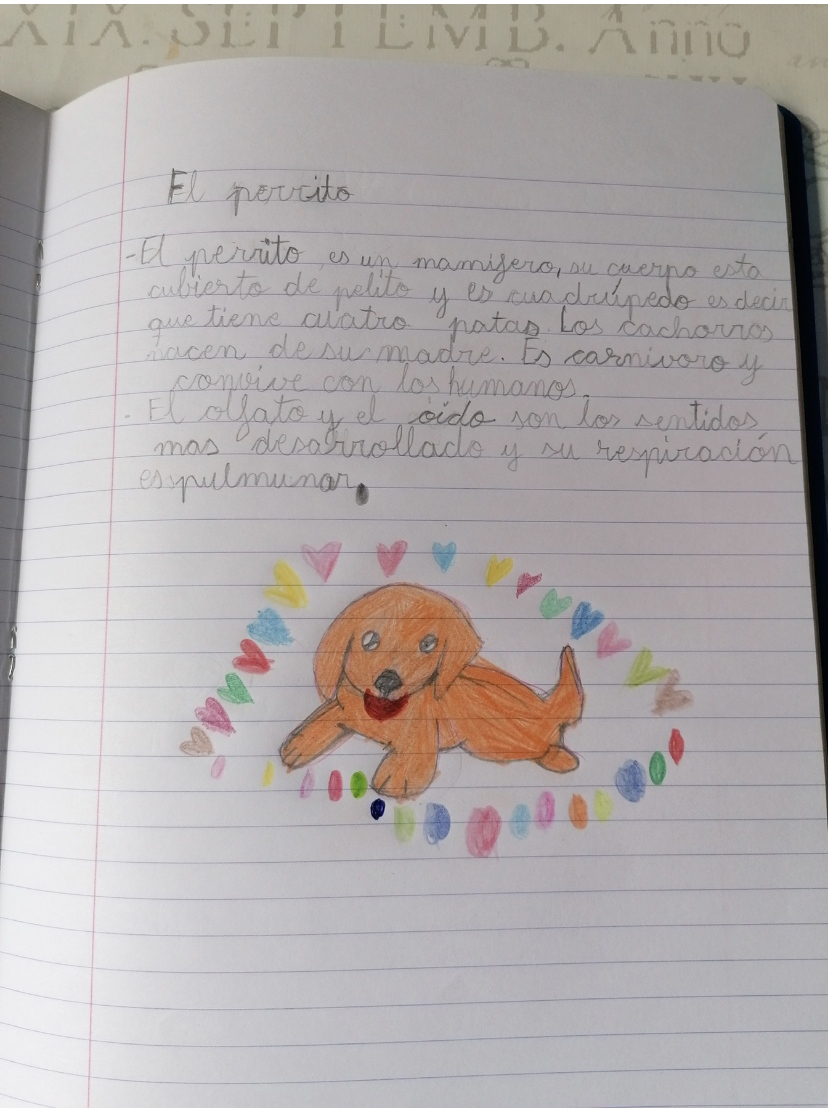 XIX. SEPTEMB. Anño
El perrito
-El perrito es un mamifero, su cuerpo esta
cubierto de pelito y es cuadrúpedo es decir
que tiene cuatro patas. Los cachorros
nacen de su madre. Es carnivoro y
convive con los humanos.
. El olfato y el oido son los sentidos
mas desarrollado y su respiración
es pulmunar.